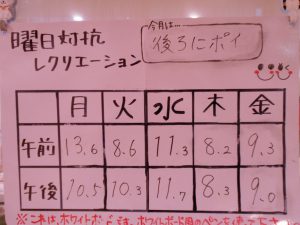 曜日対抗
レクリエーション
今月は…
後ろにポイ
月 火 水 木 金
午前 13.6 8.6 11.3 8.2 9.3
午後 10.5 10.3 11.7 8.3 9.0
※これは、ホワイトボードです。ホワイトボード用のペンを使って下さい